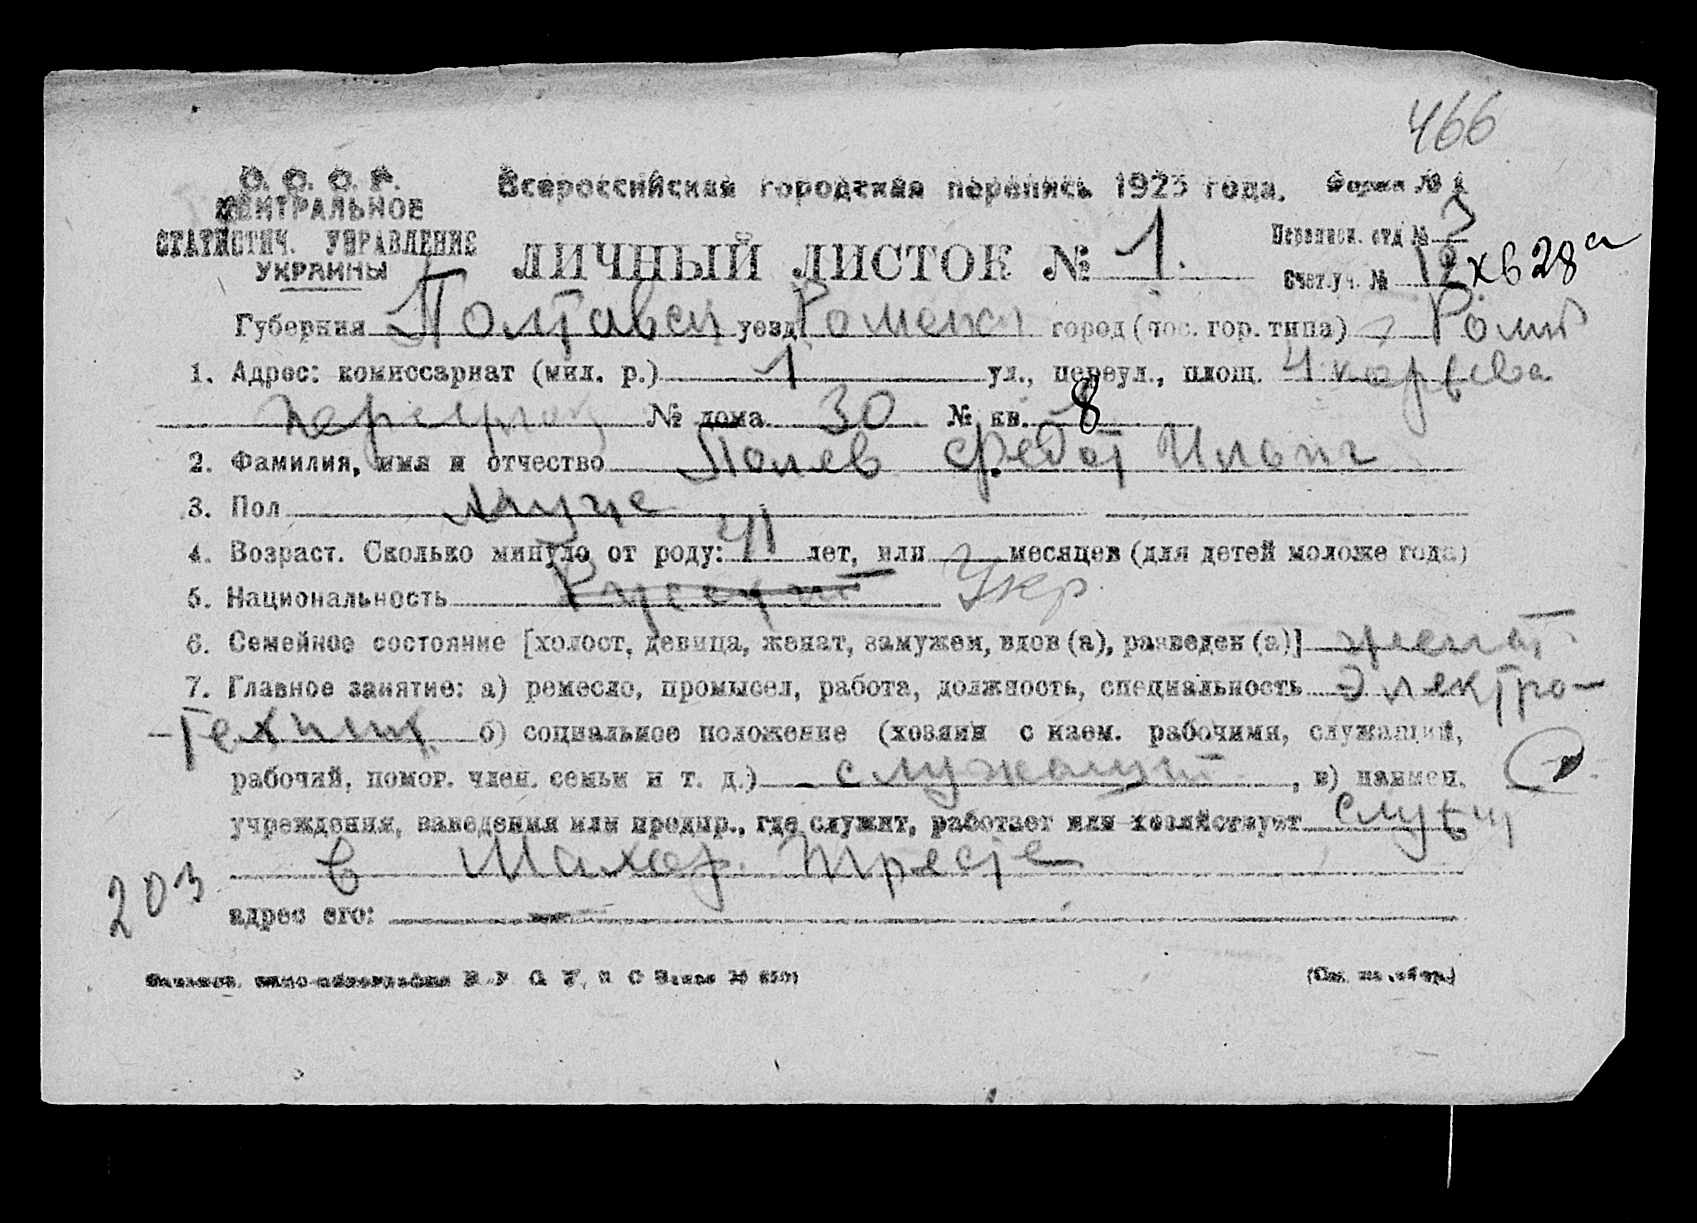 466
С. С. С. Р.
ЦЕНТРАЛЬНОЕ
СТАТИСТИЧ. УПРАВЛЕНИЕ
УКРАИНЫ
Всероссийская городская перепись 1923 года.
Форма № 1
ЛИЧНЫЙ ЛИСТОК № 1.
Переписн. отд №
Счет.уч. № 12 кв 28а
Губерния Полтавск уезд Роменск город (пос. гор. типа) Ромны
1. Адрес: комиссариат (мил. р.) 1 ул., переул., площ.
№ дома 30 № кв. 8
2. Фамилия, имя и отчество Федот Ильич
3. Пол муже
4. Возраст. Сколько минуло от роду: 41 лет, или месяцев (для детей моложе года)
5. Национальность Русский Укр.
6. Семейное состояние [холост, девица, женат, замужем, вдов (а), разведен (а)] женат.
7. Главное занятие: а) ремесло, промысел, работа, должность, специальность Электро-
-Техник б) социальное положение (хозяин с наем. рабочими, служащий,
рабочий, помог. член. семьи и т. д.) служащий, в) наимен.
учреждения, заведения или предпр., где служит, работает или хозяйствует
в Махор. Тресте
203
адрес его: —
(См. на обор.)